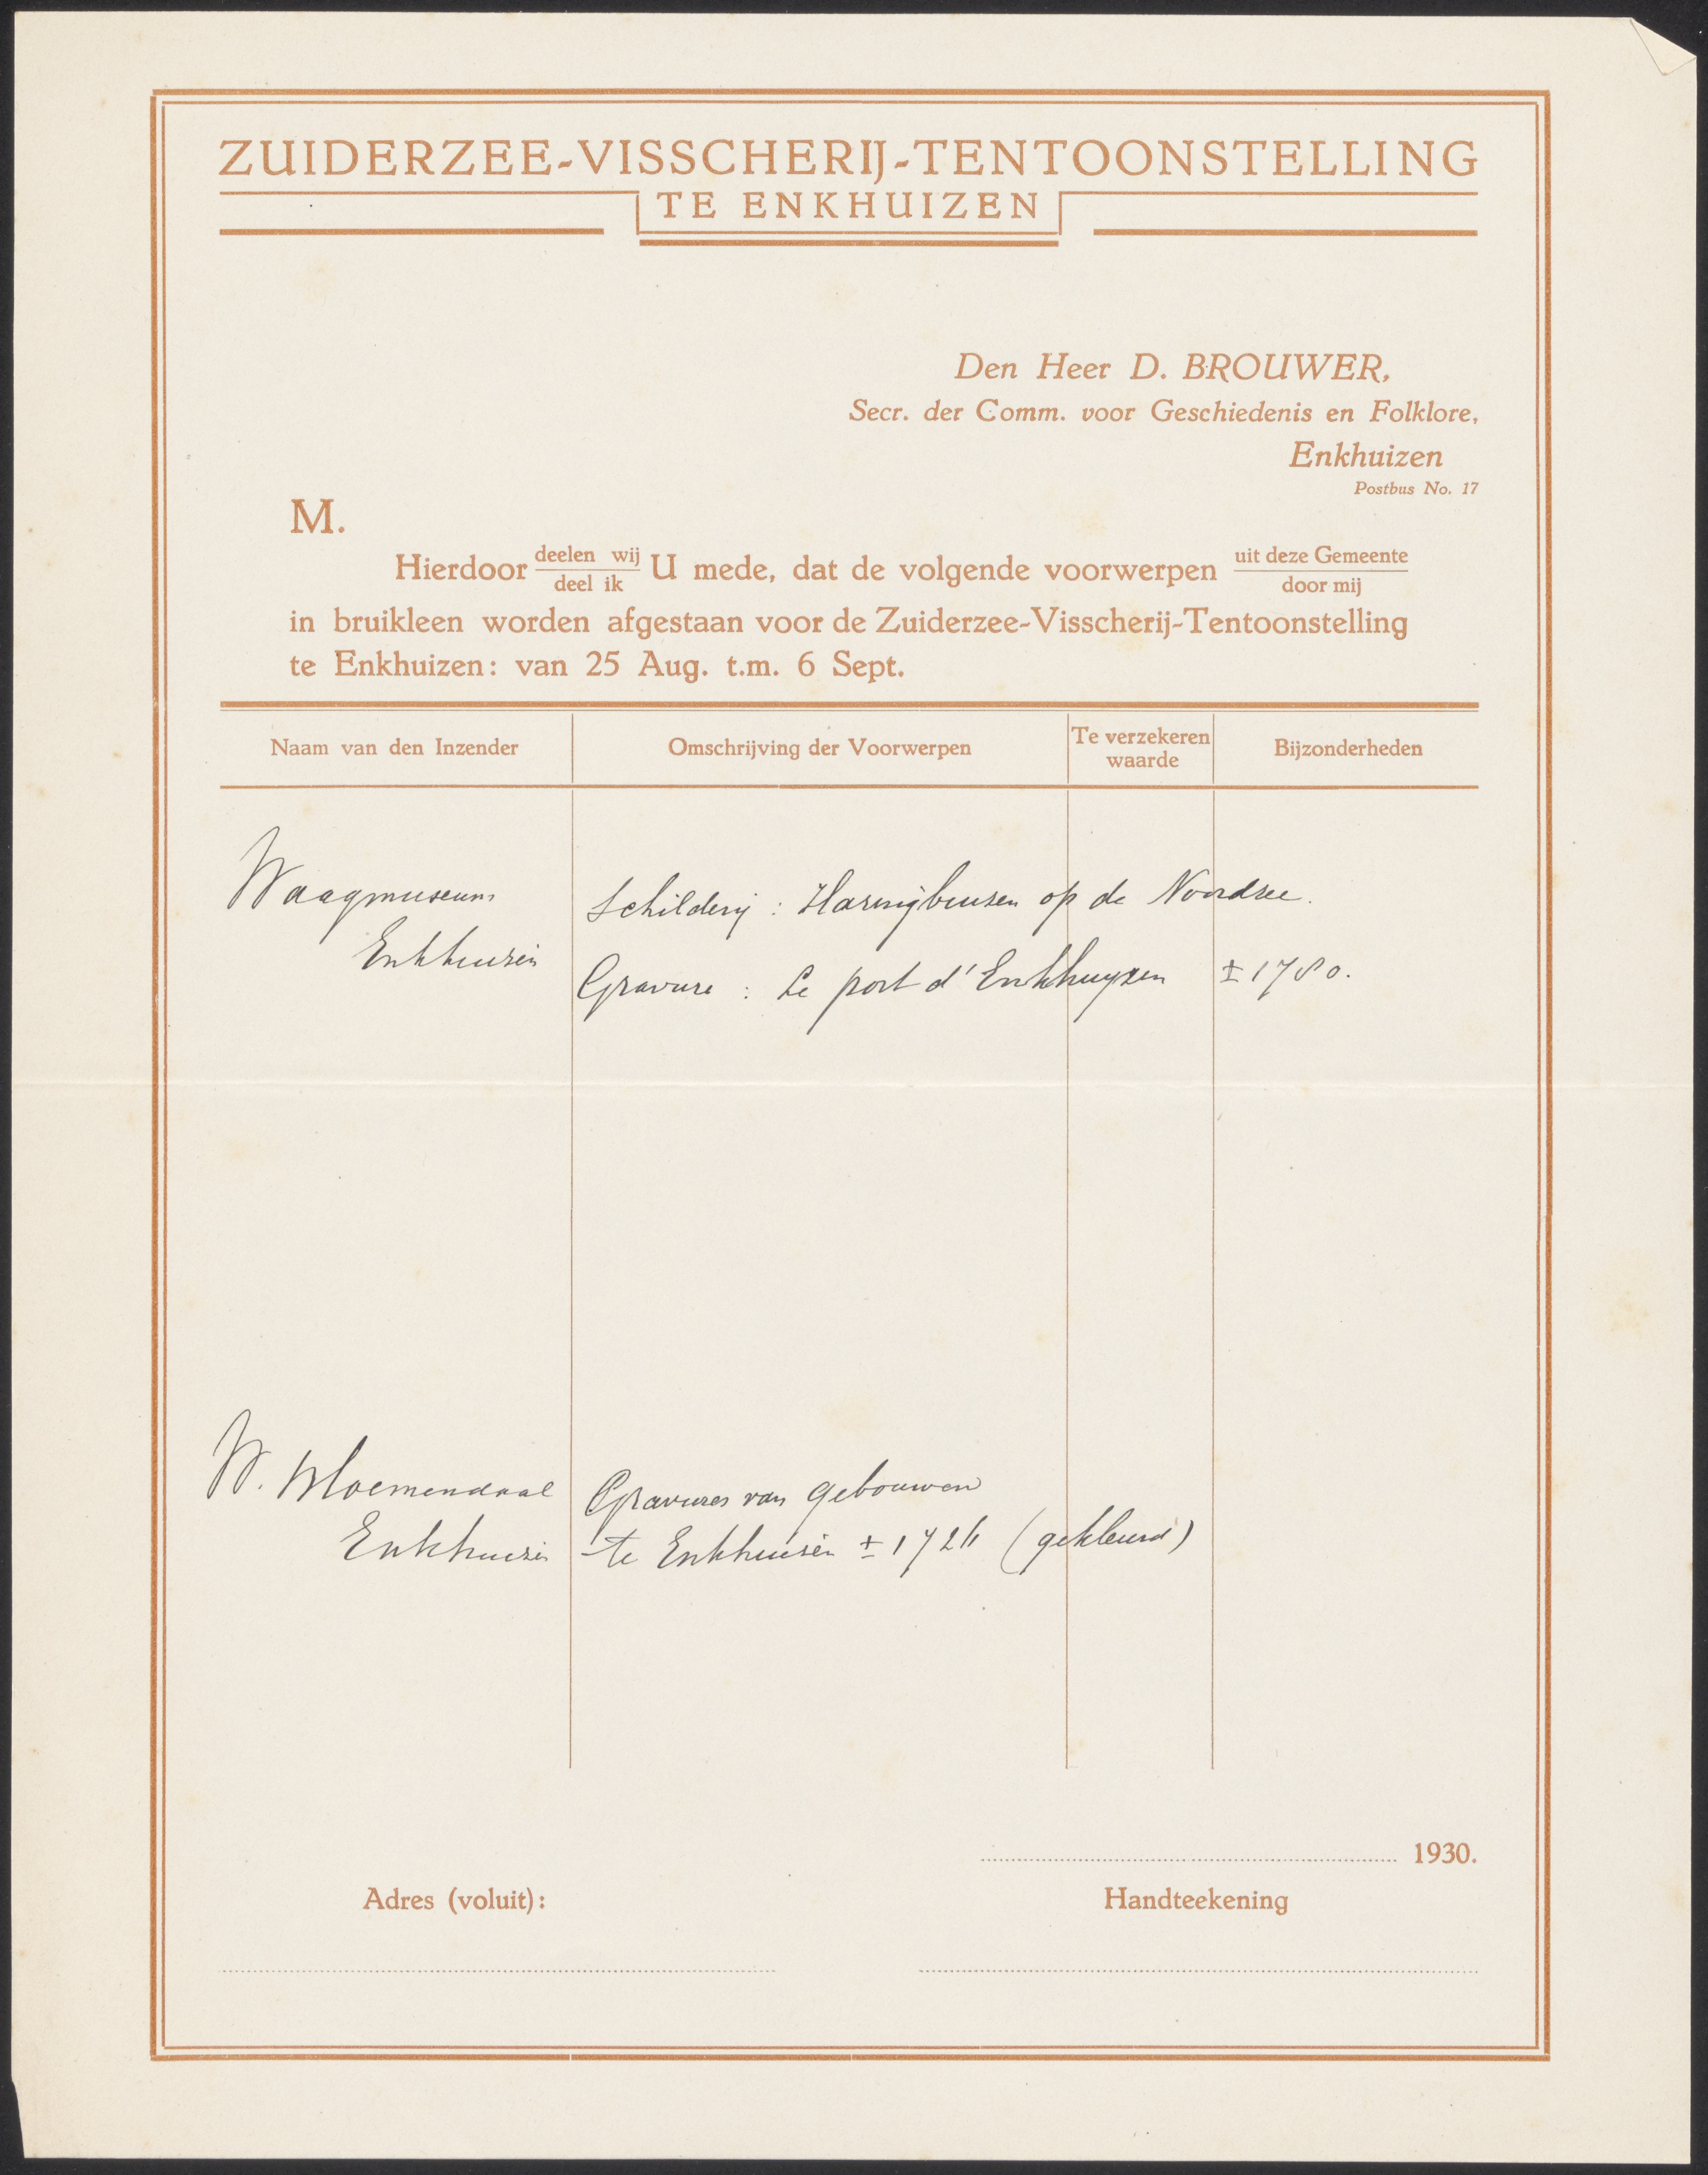 ZUIDERZEE-VISSCHERIJ-TENTOONSTELLING
TE ENKHUIZEN
Den Heer D. BROUWER,
Secr. der Comm. voor Geschiedenis en Folklore,
Enkhuizen
Postbus No. 17
M.
Hierdoor deelen wij / deel ik U mede, dat de volgende voorwerpen uit deze Gemeente / door mij
in bruikleen worden afgestaan voor de Zuiderzee-Visscherij-Tentoonstelling
te Enkhuizen: van 25 Aug. t.m. 6 Sept.
Naam van den Inzender Omschrijving der Voorwerpen Te verzekeren waarde Bijzonderheden
Waagmuseum Schilderij : Haringbuizen op de Noordzee.
Enkhuizen Gravure : Le port d'Enkhuyzen ± 1780.
W. Bloemendaal Gravures van gebouwen
Enkhuizen te Enkhuizen ± (gekleurd)
1930.
Adres (voluit): Handteekening